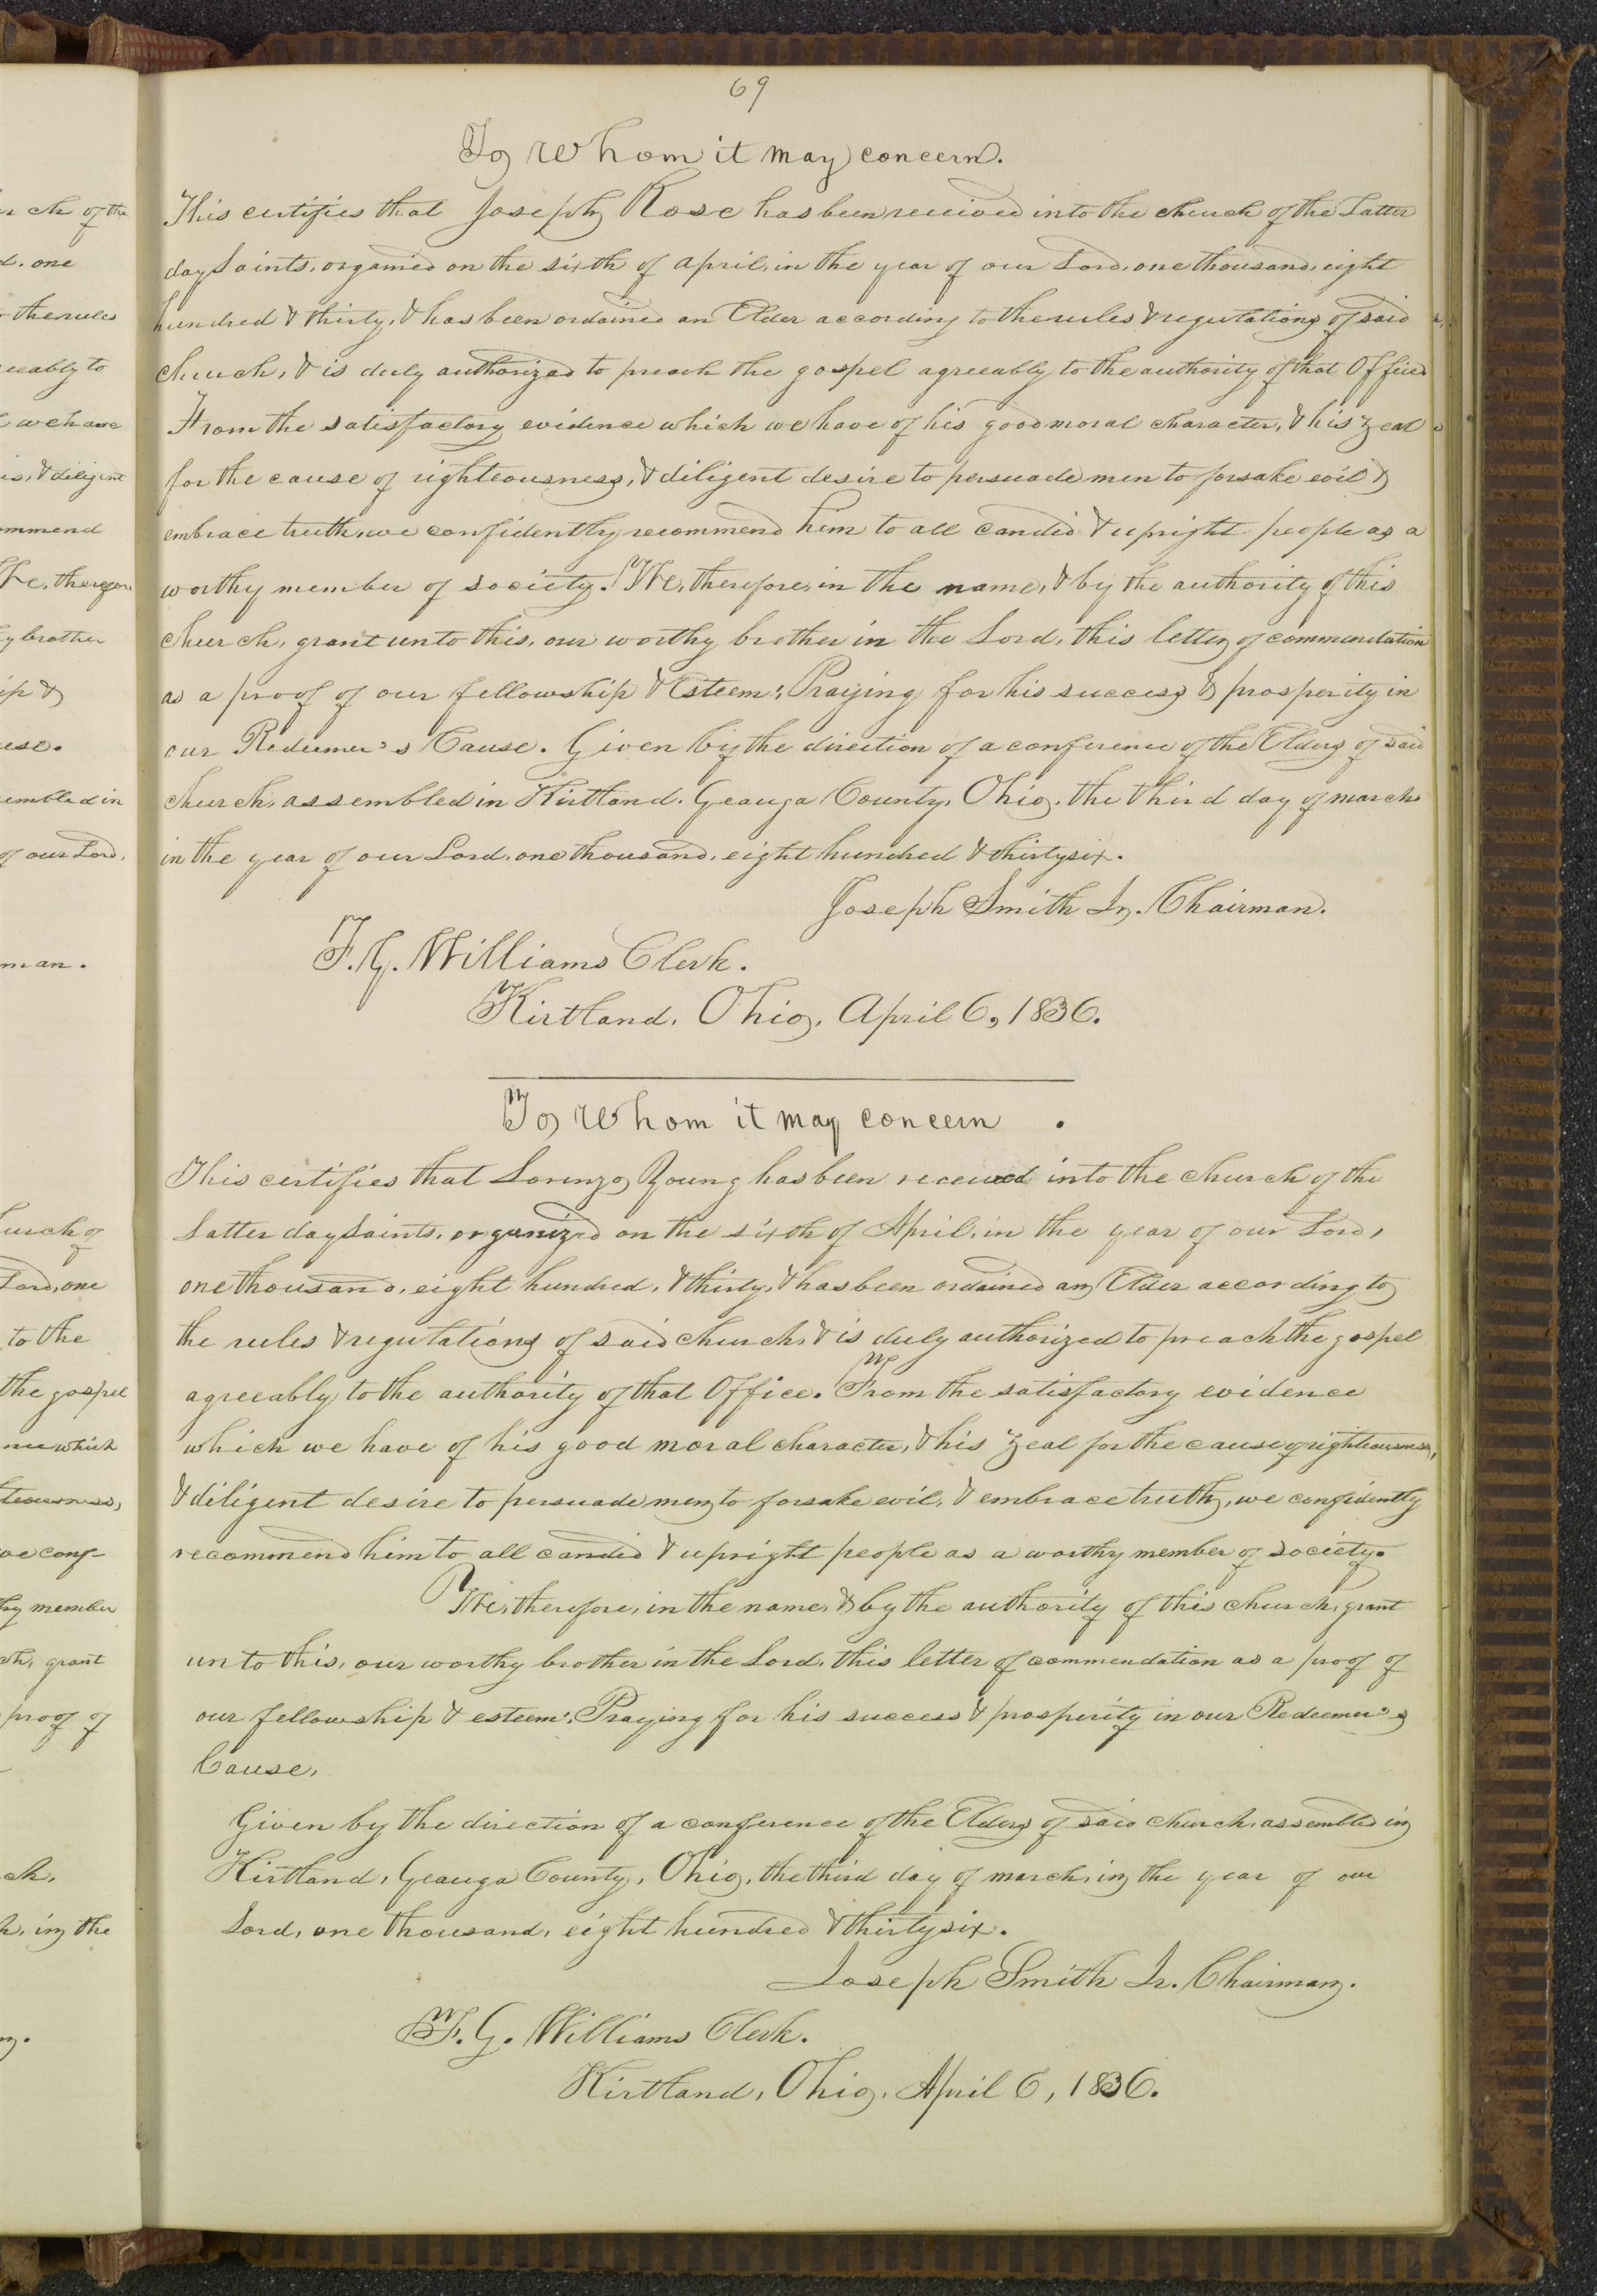 69
To Whom it may concern.
This certifies that Joseph Rose has been received into the church of the Latter
day Saints, organied on the sixth of April, in the year of our Lord, one thousand, eight
hundred & thirty, & has been ordained an Elder according to the rules & regulations of said
church, & is duly authorized to preach the gospel agreeably to the authority of that Office
From the satisfactory evidence which we have of his good moral character, & his zeal
for the cause of righteousness, & diligent desire to persuade men to forsake evil &
embrace truth, we confidently recommend him to all candid & upright people as a
worthy member of society. We, therefore, in the name, & by the authority of this
church, grant unto this, our worthy brother in the Lord, this letter of commendation
as a proof of our fellowship & Esteem: Praying for his success & prosperity in
our Redeemer's Cause. Given by the direction of a conference of the Elders of said
church, assembled in Kirtland. Geauga County, Ohio, the third day of march
in the year of our Lord, one thousand, eight hundred & thirty six.
Joseph Smith Jr. Chairman.
F. G. Williams Clerk.
Kirtland, Ohio, April 6, 1836.
To Whom it may concern.
This certifies that Lorenzo Young has been received into the church of the
Latter day Saints, organized on the sixth of April, in the year of our Lord,
one thousand, eight hundred, & thirty, & has been ordained an Elder according to
the rules & regulations of said church, & is duly authorized to preach the gospel
agreeably to the authority of that Office. From the satisfactory evidence
which we have of his good moral character, & his zeal for the cause of righteousness,
& diligent desire to persuade men to forsake evil, & embrace truth, we confidently
recommend him to all candid & upright people as a worthy member of society.
We, therefore, in the name, & by the authority of this church, grant
unto this, our worthy brother in the Lord, this letter of commendation as a proof of
our fellowship & esteem: Praying for his success & prosperity in our Redeemer's
Cause,
Given by the direction of a conference of the Elders of said church, assembled in
Kirtland, Geauga County, Ohio, the third day of march, in the year of our
Lord, one thousand, eight hundred & thirty six.
Joseph Smith Jr. Chairman.
F. G. Williams Clerk.
Kirtland, Ohio, April 6, 1836.